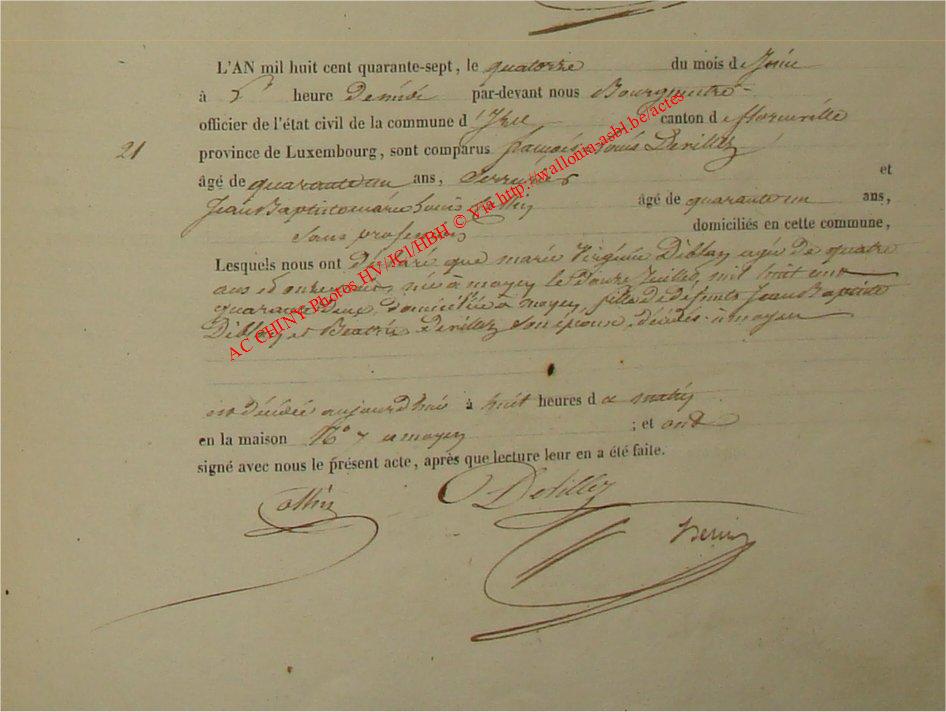 L'AN mil huit cent quarante-sept, le quatorze du mois de Juin
à heure de midi par-devant nous Bourgmestre
officier de l'état civil de la commune d' canton d Florenville
21 province de Luxembourg, sont comparus françois Louis Devillez
âgé de quarante un ans, Serrurier et
Jean Baptiste marie Louis âgé de quarante un ans,
Sans profession domiciliés en cette commune,
Lesquels nous ont déclaré que marie Virginie Diblay agée de quatre
ans et onze mois née à moyen le Douze Juillet mil huit cent
quarante Deux, domiciliée à moyen, fille de defunts Jean Baptiste
Diblay et Beatrix Devillez Son épouse, décédés à moyen
est décédée aujourd'hui à huit heures d u matin
en la maison No 7 a moyen ; et ont
signé avec nous le présent acte, après que lecture leur en a été faite.
Devillez
AC CHINY Photos HV/JCI/HBH © Via http://wallonia-asbl.be/actes